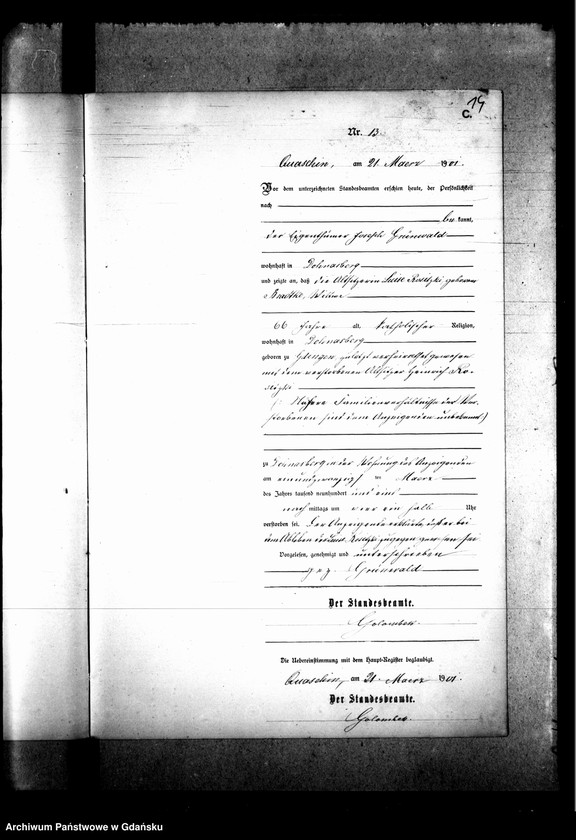 14
C.
Nr. 13.
Quaschin, am 21 Maerz 1901.
Vor dem unterzeichneten Standesbeamten erschien heute, der Persönlichkeit
nach
be kannt,
der Eigenthümer Joseph Grünwald
wohnhaft in
und zeigte an, daß die Altsitzerin geborene
Wittwe
66 Jahre alt, katholischer Religion,
wohnhaft in
geboren zu zuletzt verheirathet gewesen
mit dem verstorbenen Altsitzer Heinrich
(Nähere Familienverhältnisse der Ver-
storbenen sind dem Anzeigenden unbekannt)
zu in der Wohnung des Anzeigenden
am einundzwanzigsten Maerz
des Jahres tausend neunhundert und eins
nach mittags um vier ein halb Uhr
verstorben sei. Der Anzeigende erklärte, daß er bei
dem Ableben der zugegen gewesen sei
Vorgelesen, genehmigt und unterschrieben
gez. Grünwald
Der Standesbeamte.
Golombek
Die Uebereinstimmung mit dem Haupt-Register beglaubigt.
Quaschin, am 21. Maerz 1901.
Der Standesbeamte.
Golombek
Archiwum Państwowe w Gdańsku